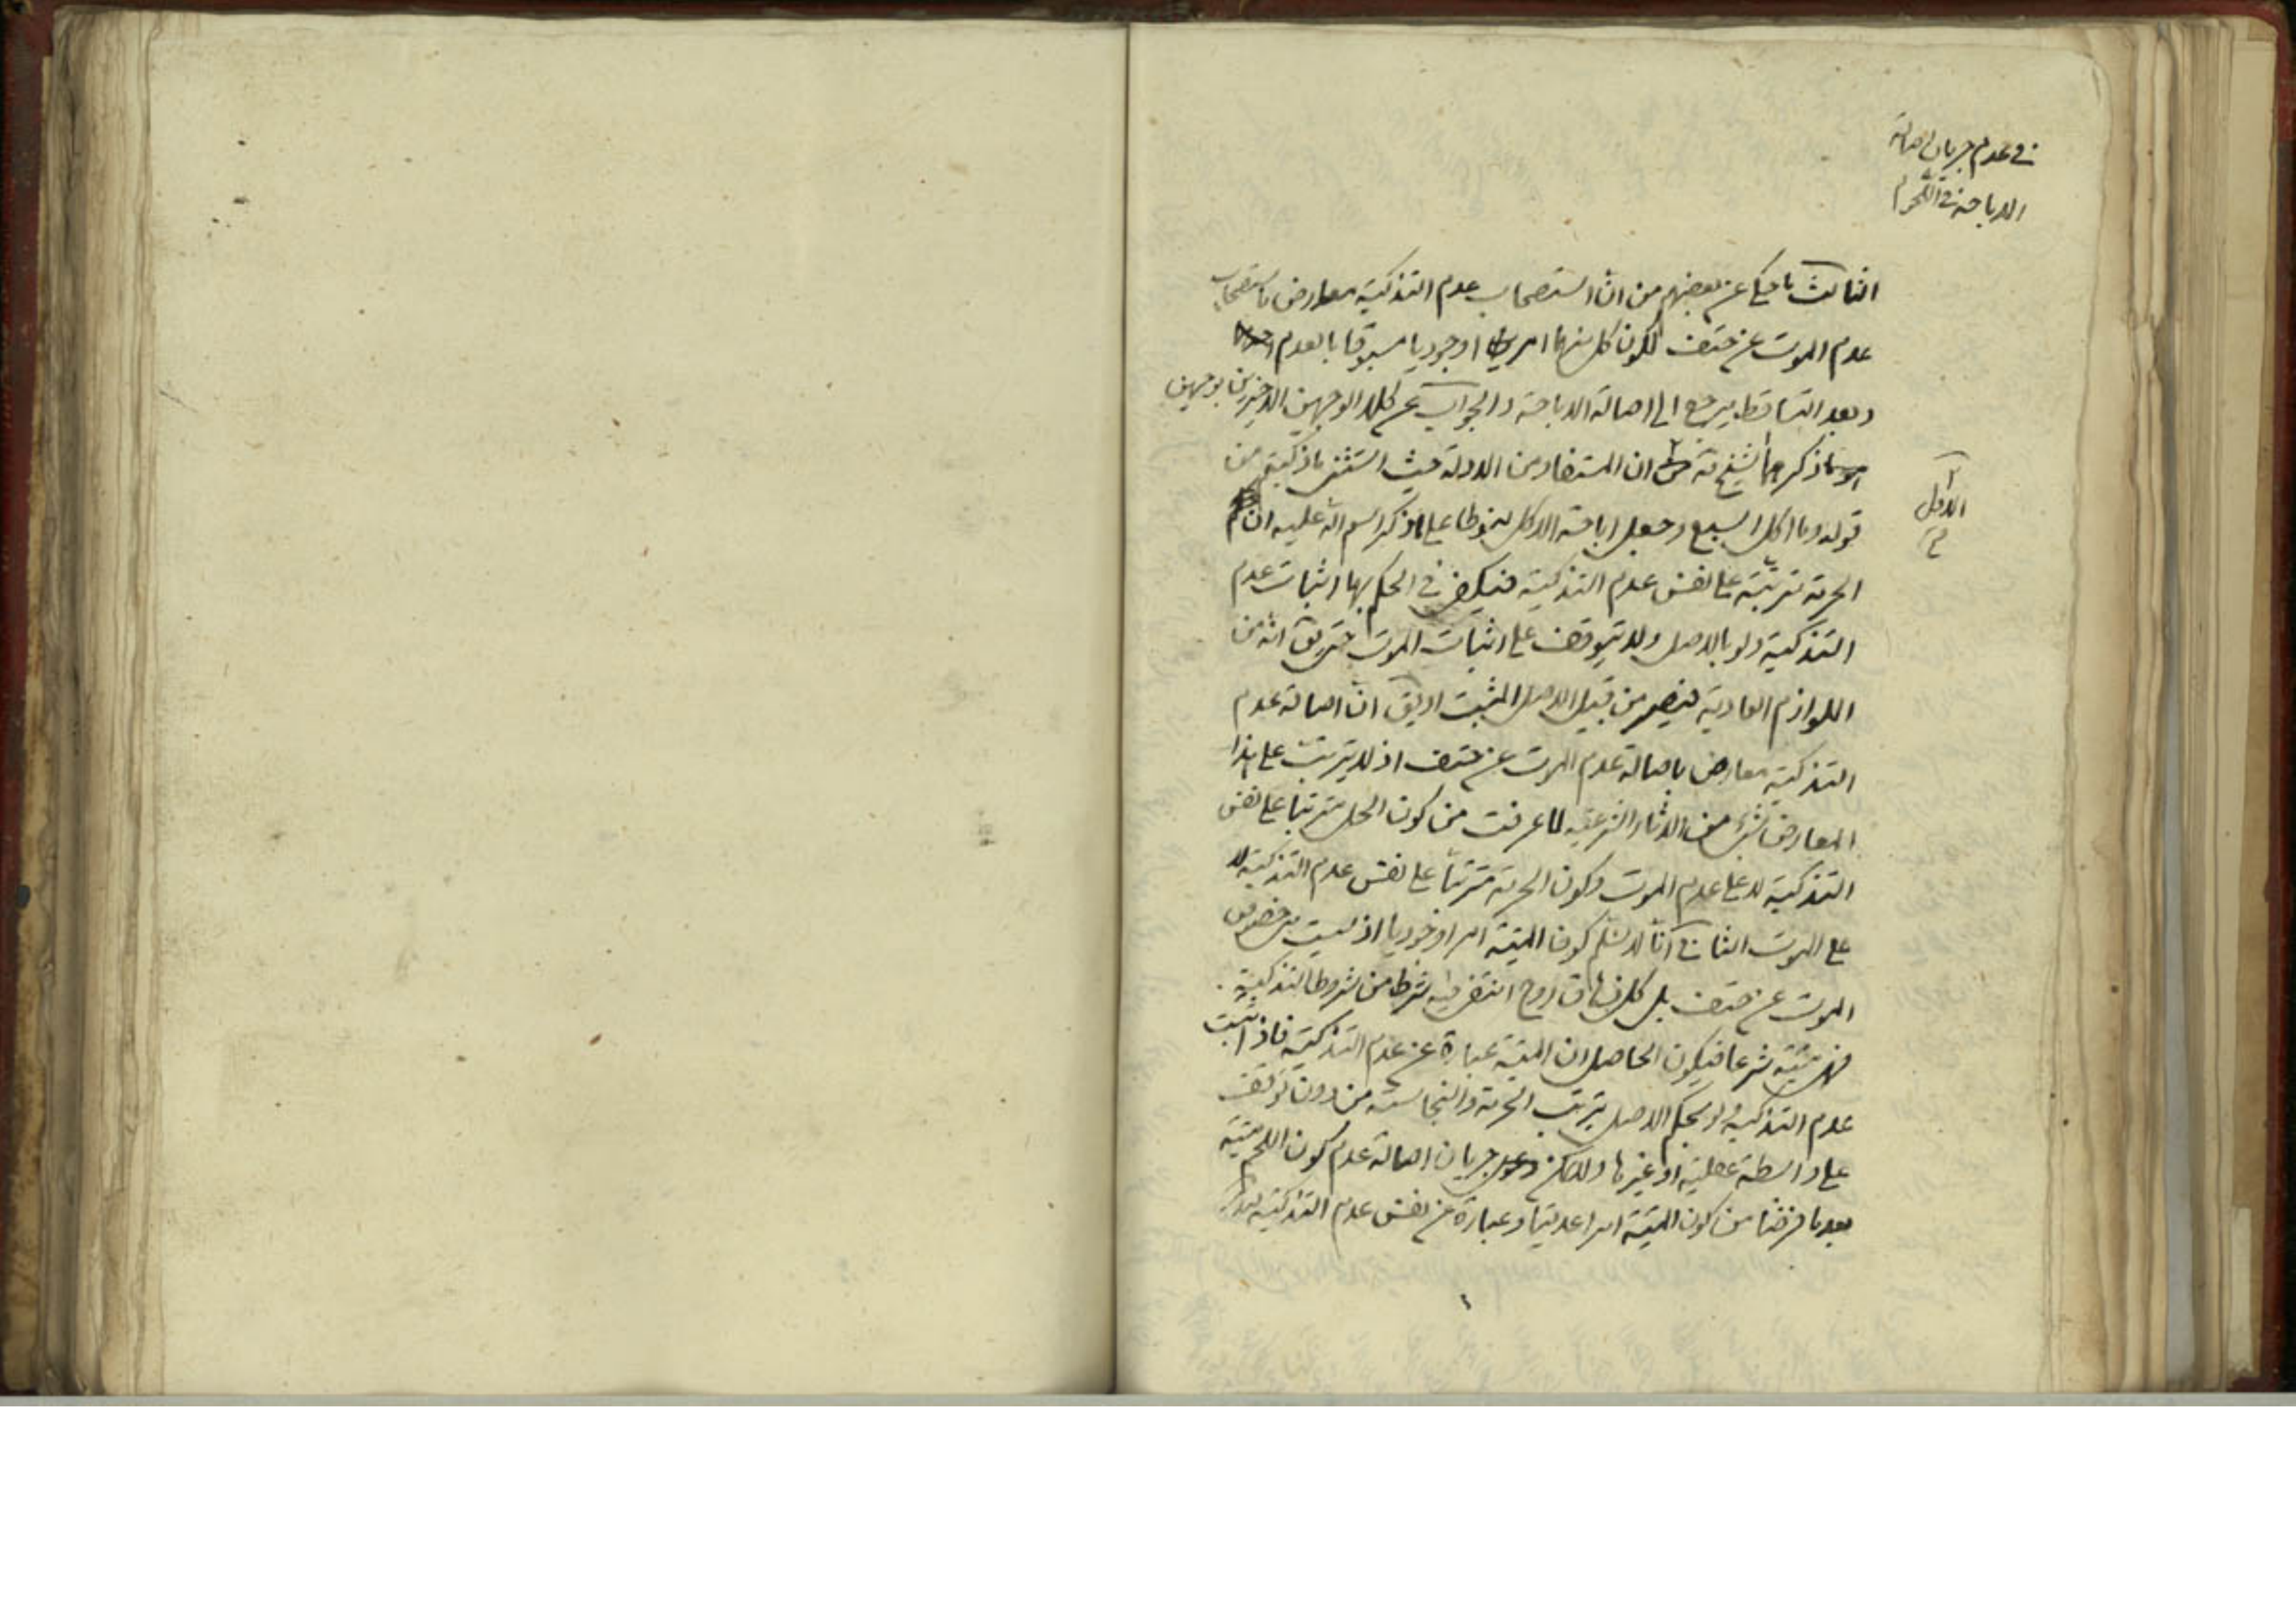 في عدم جريان اصالة
الاباحة في اللحوم
الثالث ما حكي عن بعضهم من ان استصحاب عدم التذكية معارض باستصحاب
عدم الموت عن حتف لكون كل منهما امرا وجوديا مسبوقا بالعدم
وبعد التساقط يرجع الى اصالة الاباحة والجواب عن كلا الوجهين الاخيرين بوجهين
الاول
ما ذكره الشيخ من ان المستفاد من الادلة حيث استثنى ما ذكيتم من
قوله وما اكل السبع وجعل اباحة الاكل منوطا على ما ذكر اسم الله عليه ان
الحرمة مترتبة على نفس عدم التذكية فيكفي في الحكم بها اثبات عدم
التذكية ولو بالاصل ولا يتوقف على اثبات الموت حتى يق انه من
اللوازم العادية فيصير من قبيل الاصل المثبت او يق ان اصالة عدم
التذكية معارض باصالة عدم الموت عن حتف اذ لا يترتب على هذا
المعارض شيء من الاثار الشرعية لما عرفت من كون الحل مترتبا على نفس
التذكية لا على عدم الموت وكون الحرمة مترتبا على نفس عدم التذكية لا
على الموت الثاني انا لا نسلم كون الميتة امرا وجوديا اذ ليست هي خصوص
الموت عن حتف بل كل زهاق روح انتفى فيه شرط من شروط التذكية
فهي ميتة شرعا فيكون الحاصل ان الميتة عبارة عن عدم التذكية فاذا ثبت
عدم التذكية ولو بحكم الاصل يترتب الحرمة والنجاسة من دون توقف
على واسطة عقلية او غيرها ولا يمكن دعوى جريان اصالة عدم كون اللحم ميتة
بعد ما فرضنا من كون الميتة امرا عدميا وعبارة عن نفس عدم التذكية